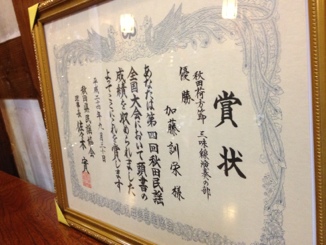 賞状
秋田荷方節 三味線演奏の部
優勝
加藤訓栄様
あなたは第四回秋田民謡
全国大会において頭書の
成績を収められました
よってここにこれを賞します
平成二十六年九月二十日
秋田県民謡協会
理事長 佐々木